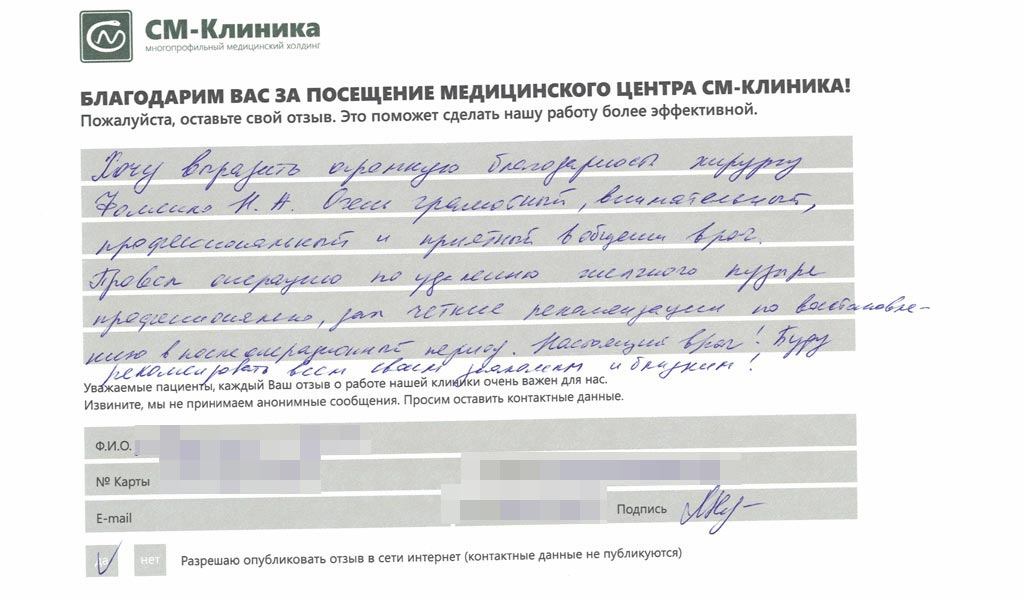 СМ-Клиника
многопрофильный медицинский холдинг
БЛАГОДАРИМ ВАС ЗА ПОСЕЩЕНИЕ МЕДИЦИНСКОГО ЦЕНТРА СМ-КЛИНИКА!
Пожалуйста, оставьте свой отзыв. Это поможет сделать нашу работу более эффективной.
Хочу выразить огромную благодарность хирургу
Фоменко Н. А. Очень грамотный, внимательный,
профессиональный и приятный в общении врач.
Провел операцию по удалению желчного пузыря
профессионально, дал четкие рекомендации по восстановле-
нию в послеоперационный период. Настоящий врач! Буду
рекомендовать всем своим знакомым и близким!
Уважаемые пациенты, каждый Ваш отзыв о работе нашей клиники очень важен для нас.
Извините, мы не принимаем анонимные сообщения. Просим оставить контактные данные.
Ф.И.О.
№ Карты
E-mail
Подпись
да нет Разрешаю опубликовать отзыв в сети интернет (контактные данные не публикуются)